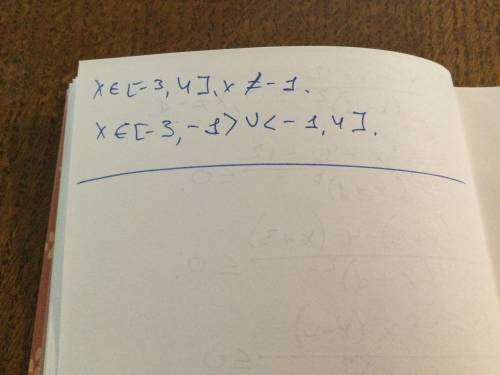 x∈[-3,4], x≠-1.
x∈[-3,-1>∪<-1,4].